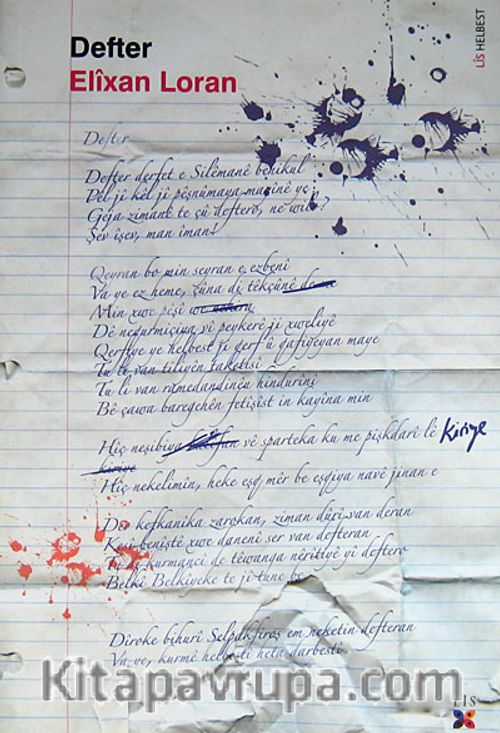 Defter
Elîxan Loran
LİS HELBEST
Defter
Defter derfet e Silêmanê behikul
Pel ji kêl ji pêşnûmaya marînê ye
Gêja zimanê te çû deftero, ne wilo?
Şev îşev, man îman!
Qeyran bo min seyran e ezbenî
Va ye ez heme, çûna di têkçûnê de me
Min xwe pêşî
Dê negurmiçiya vî peykerê ji xweliyê
Qerfiye ye helbest ji qerf û qafiyeyan maye
Tu li van tiliyên taketîsî
Tu li van ramedandinên hindurînî
Bê çawa baregehên fetîşîst in kayîna min
Hîç neşibiya vê sparteka ku me pişkdarî lê Kiriye
kiriye
Hîç nekelimîn, heke eşq mêr be eşqiya navê jinan e
Der kefkanîka zarokan, ziman dûçî van deran
benîştê xwe danenî ser van defteran
kurmancî de têwanga nêrîtiyê yî deftero
Belkê Belkiyeke te jî tune be
Dîroke bihurî Selpakfiroş em neketin defteran
Va ye, kurmê helbestî heta darbestî
Kitapavrupa.com
LİS